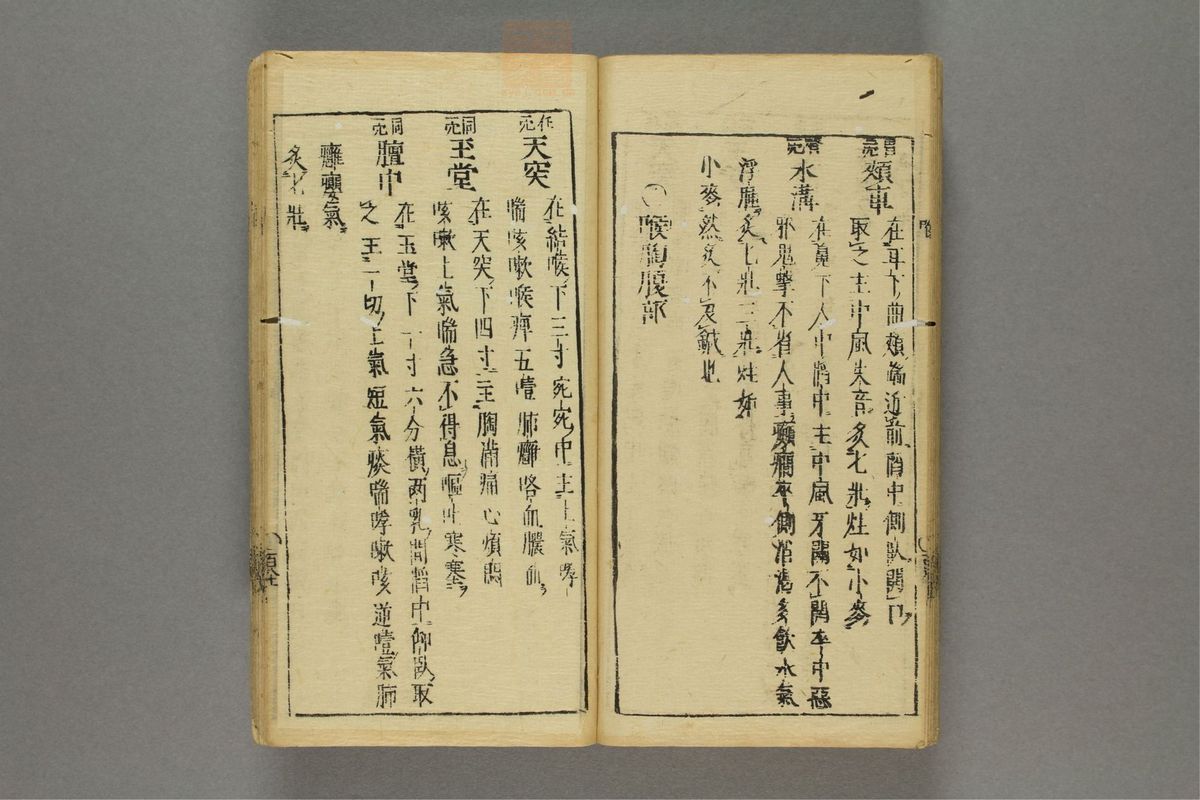 胃穴
頰車
在耳下曲頰端近前陷中側臥開口
取之主中風失音灸七壯炷如小麥
督穴
水溝
在鼻下人中陷中主中風牙關不開卒中惡
邪鬼擊不省人事癲癇卒倒消渴多飲水氣
浮腫灸七壯三壯炷如
小麥然灸不及鍼也
〇喉胸腹部
任穴
天突
在結喉下三寸宛宛中主上氣哮
喘咳嗽喉痺五噎肺癰咯血膿血
同穴
玉堂
在天突下四寸主胸滿痛心煩悶
咳嗽上氣喘急不得息嘔吐寒痰
同穴
膻中
在玉堂下一寸六分橫両乳間陷中仰臥取
之主一切上氣短氣痰喘哮嗽咳逆噎氣肺
癰癭氣
灸七壯